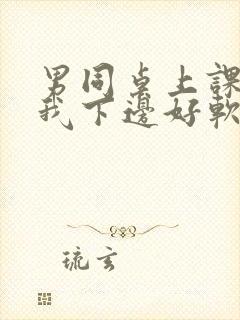 男同桌上課
我下邊好軟
琉玄